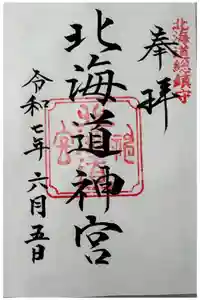 北海道総鎮守
奉拝
北海道神宮
令和七年 六月五日